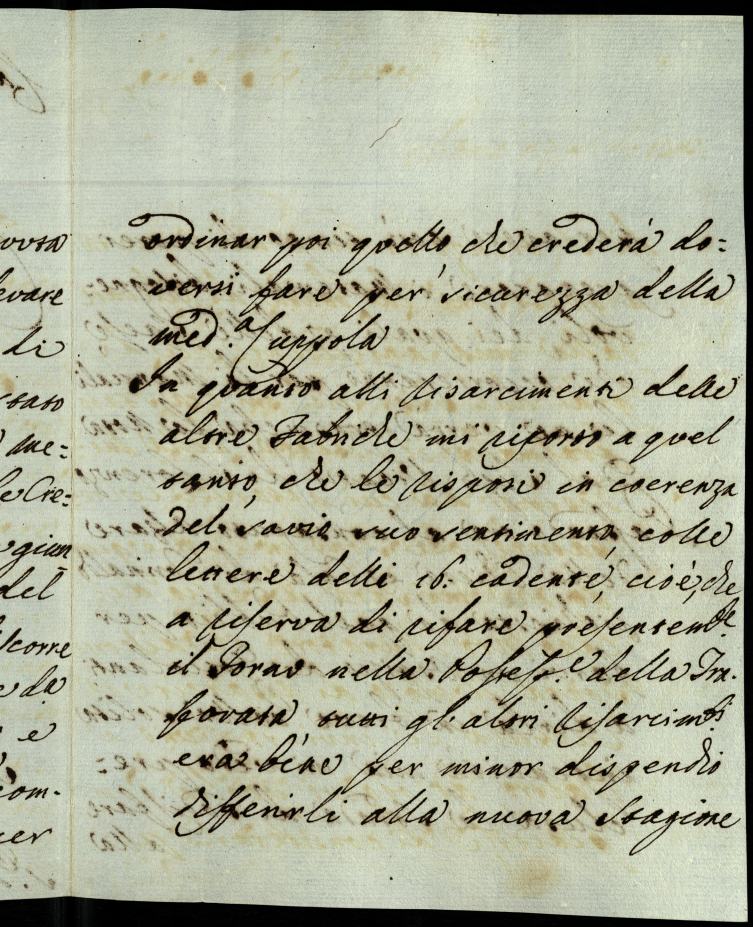 vuta
evare
di
stato
me=
le Cre=
giun
del
scorre
e da
e
com-
per
ordinar poi quello che crederà do=
versi fare per sicurezza della
med.a Cuppola
In quanto alli risarcimenti delle
altre Fabriche mi riporto a quel
tanto, che le risposi in coerenza
del savio suo sentimento colle
lettere delli 16. cadente, cioè, che
a riserva di rifare presentemte.
il Forno nella Possess.e della Tra-
forata tutti gl'altri risarcimti
era bene per minor dispendio
differirli alla nuova Stagione